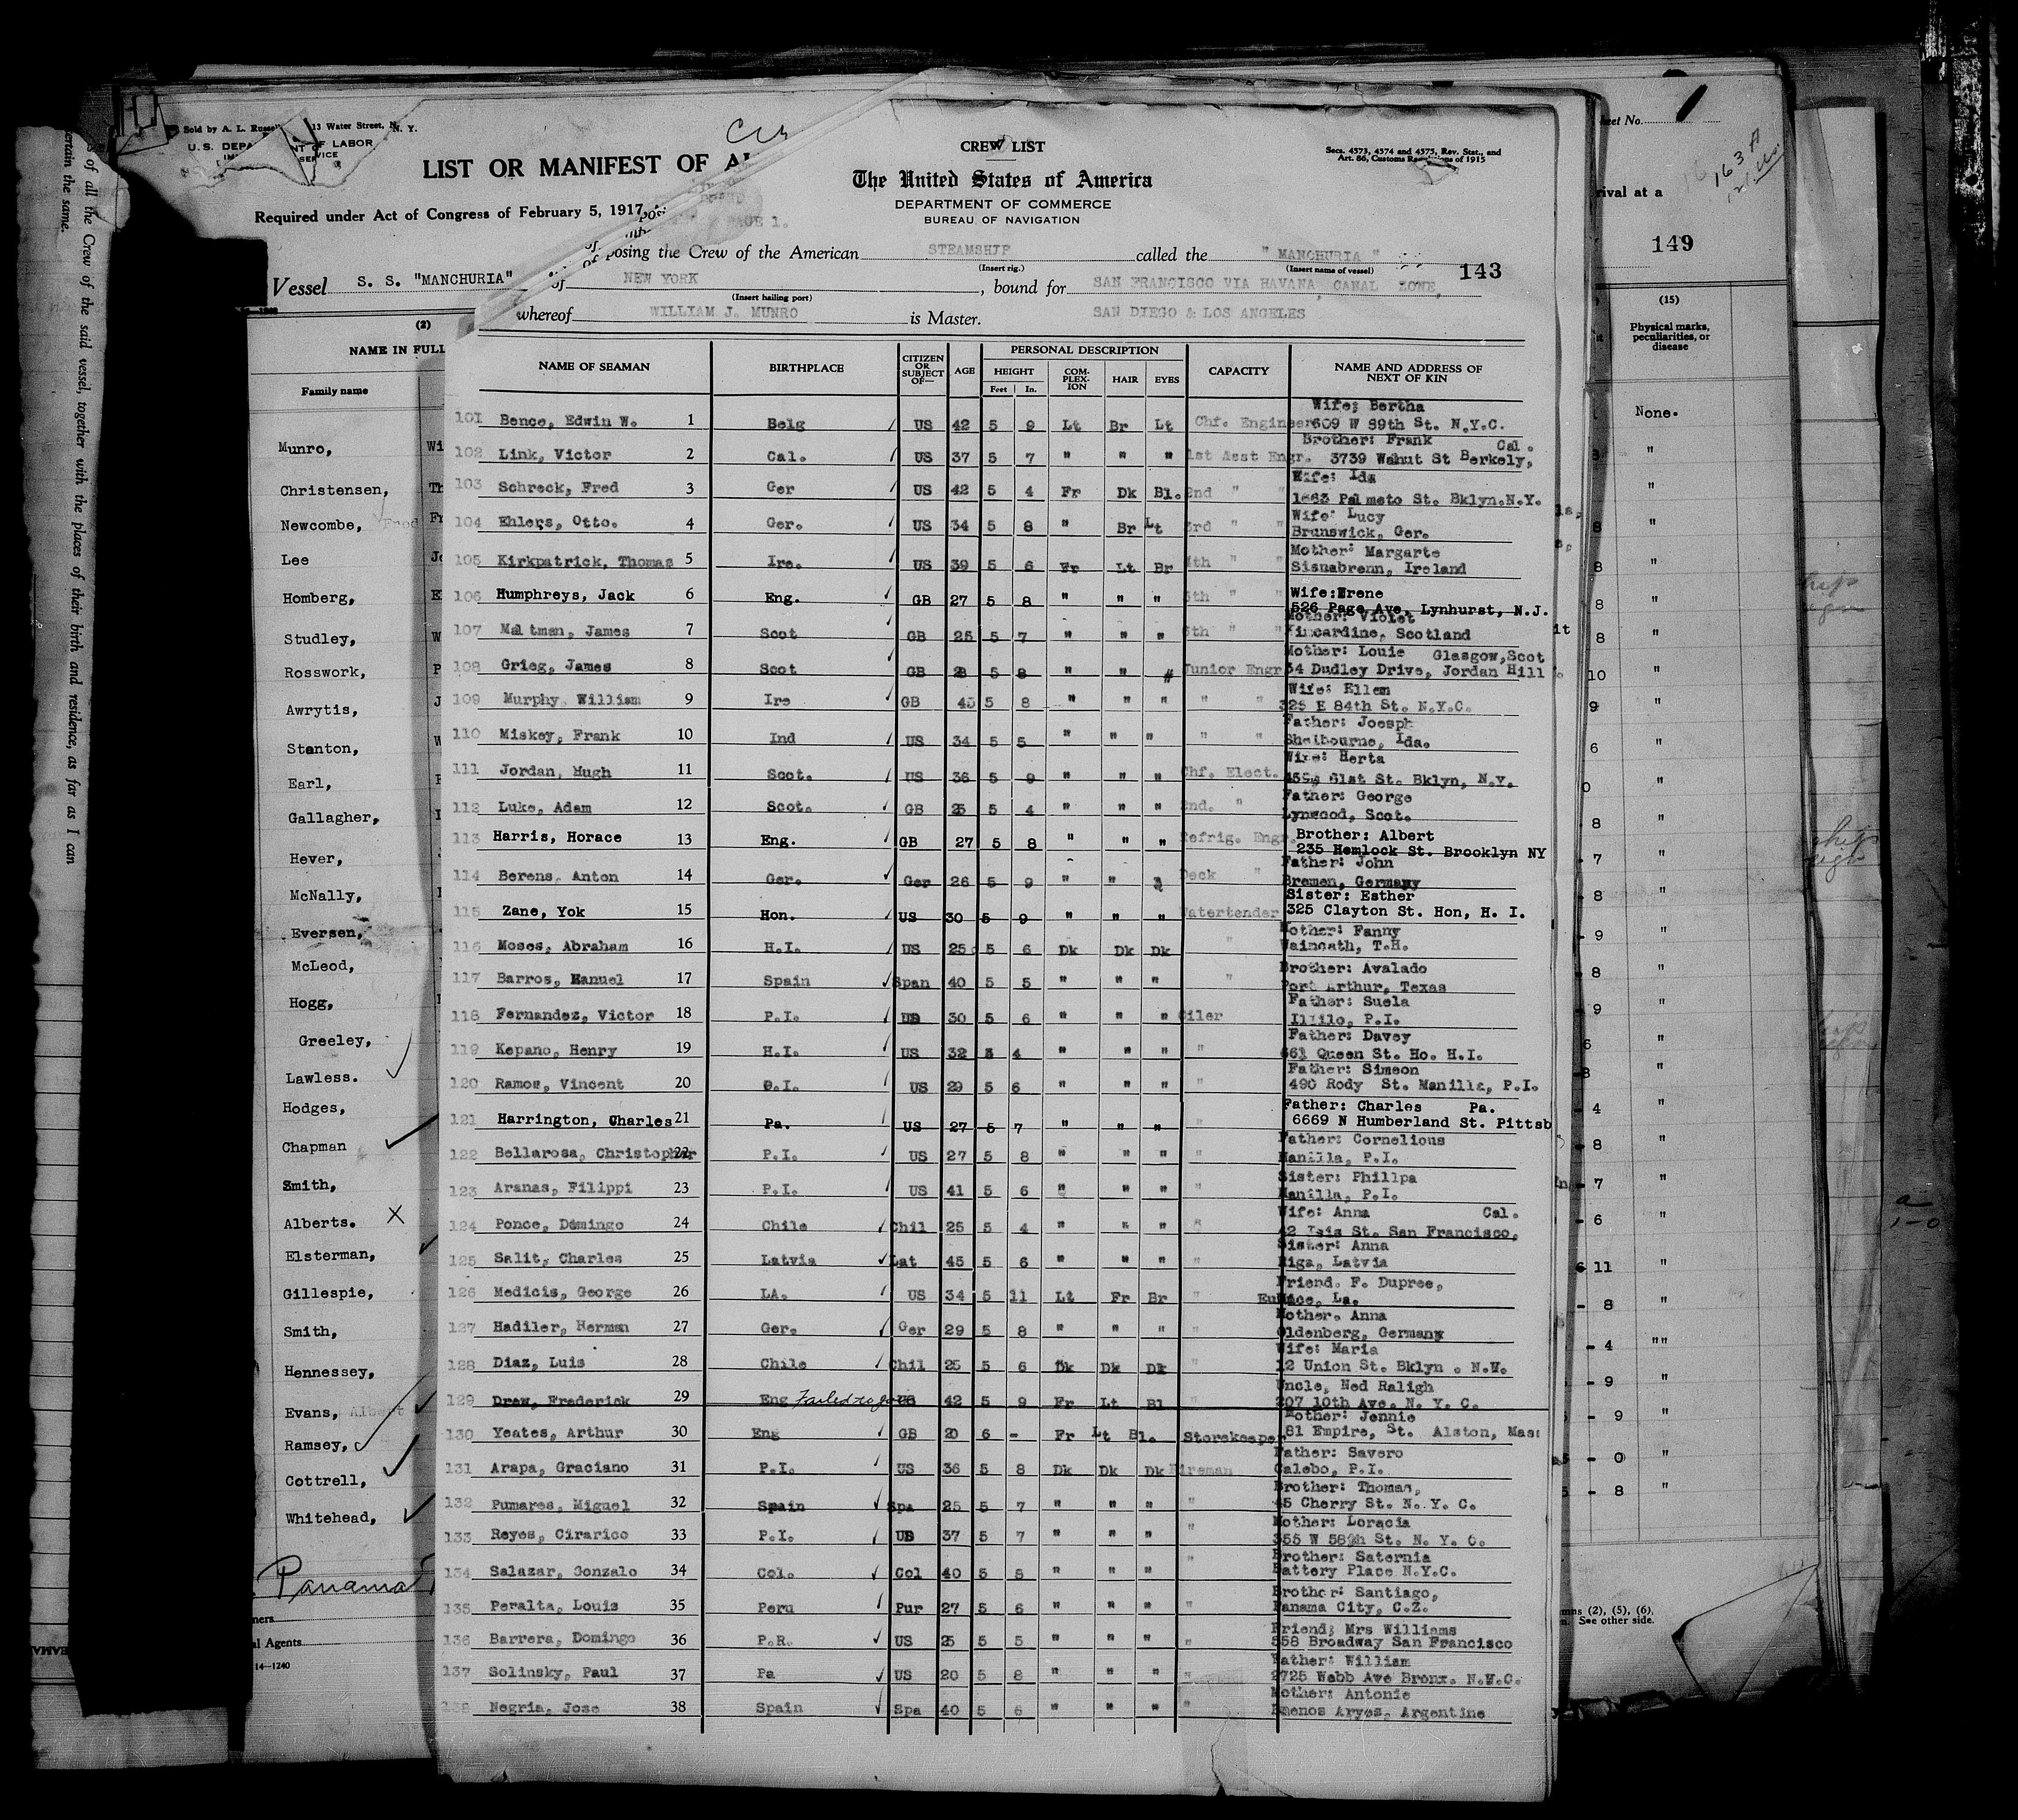 of all the Crew of the said vessel, together with the places of their birth and residence, as far as I can
certain the same.
Sold by A. L. Russell 13 Water Street, N. Y.
U.S. DEPA NT OF LABOR
SERVICE
LIST OR MANIFEST OF AL
Required under Act of Congress of February 5, 1917,
Vessel S. S. "MANCHURIA"
(2)
NAME IN FULL
Family name
Munro, Wi
Christensen, Th
Newcombe, Fred Fr
Lee Jo
Homberg, E
Studley, W
Rosswork, P
Awrytis, J
Stanton, W
Earl,
Gallagher,
Hever,
McNally,
Eversen,
McLeod,
Hogg,
Greeley,
Lawless.
Hodges,
Chapman
Smith,
Alberts. X
Elsterman,
Gillespie,
Smith,
Hennessey,
Evans, Albert
Ramsey,
Cottrell,
Whitehead,
Panama
ners
al Agents
14—1240
CREW LIST
Secs. 4573, 4574 and 4575, Rev. Stat., and
Art. 86, Customs Regulations of 1915
The United States of America
DEPARTMENT OF COMMERCE
BUREAU OF NAVIGATION
PAGE 1.
posing the Crew of the American STEAMSHIP called the "MANCHURIA"
(Insert rig.) (Insert name of vessel) 143
of NEW YORK, bound for SAN FRANCISCO VIA HAVANA, CANAL ZONE,
(Insert hailing port)
whereof WILLIAM J. MUNRO is Master. SAN DIEGO & LOS ANGELES
NAME OF SEAMAN BIRTHPLACE CITIZEN OR SUBJECT OF— AGE PERSONAL DESCRIPTION CAPACITY NAME AND ADDRESS OF NEXT OF KIN
HEIGHT COMPLEXION HAIR EYES
Feet In.
Wife; Bertha
101 Bence, Edwin W. 1 Belg US 42 5 9 Lt Br Lt Chf. Engineer 609 W 89th St. N.Y.C.
Brother: Frank Cal.
102 Link, Victor 2 Cal. US 37 5 7 " " " 1st Asst Engr. 3739 Walnut St Berkely,
Wife: Ida
103 Schreck, Fred 3 Ger US 42 5 4 Fr Dk Bl. 2nd " " 1663 Palmeto St. Bklyn.N.Y.
Wife: Lucy
104 Ehlers, Otto. 4 Ger. US 34 5 8 " Br Lt 3rd " " Brunswick, Ger.
Mother: Margarte
105 Kirkpatrick, Thomas 5 Ire. US 39 5 6 Fr Lt Br 4th " " Sisnabrenn, Ireland
Wife:Erene
106 Humphreys, Jack 6 Eng. GB 27 5 8 " " " 5th " " 526 Page Ave, Lynhurst, N.J.
Mother: Violet
107 Maltman, James 7 Scot GB 25 5 7 " " " 6th " " Kincardine, Scotland
Mother: Louie Glasgow,Scot
108 Grieg, James 8 Scot GB 28 5 8 " " " Junior Engr 54 Dudley Drive, Jordan Hill
Wife: Ellen
109 Murphy, William 9 Ire GB 45 5 8 " " " " " 325 E 84th St. N.Y.C.
Father: Joesph
110 Miskey, Frank 10 Ind US 34 5 5 " " " " " Shelbourne, Ida.
Wife: Herta
111 Jordan, Hugh 11 Scot. US 36 5 9 " " " Chf. Elect. 61st St. Bklyn, N.Y.
Father: George
112 Luke, Adam 12 Scot. GB 25 5 4 " " " 2nd. " Lynwood, Scot.
Brother: Albert
113 Harris, Horace 13 Eng. GB 27 5 8 " " " Refrig. Engr. 235 Hemlock St. Brooklyn NY
Father: John
114 Berens, Anton 14 Ger. Ger 26 5 9 " " " Deck " Bremen, Germany
Sister: Esther
115 Zane, Yok 15 Hon. US 30 5 9 " " " Watertender 325 Clayton St. Hon, H. I.
Mother: Fanny
116 Moses, Abraham 16 H.I. US 25 5 6 Dk Dk Dk " Waincath, T.H.
Brother: Avalado
117 Barros, Manuel 17 Spain Span 40 5 5 " " " " Port Arthur, Texas
Father: Suela
118 Fernandez, Victor 18 P.I. US 30 5 6 " " " Oiler Illilo, P.I.
Father: Davey
119 Kepano, Henry 19 H.I. US 32 5 4 " " " " 661 Queen St. Ho. H.I.
Father: Simeon
120 Ramos, Vincent 20 P.I. US 29 5 6 " " " " 490 Rody St. Manilla, P.I.
Father: Charles Pa.
121 Harrington, Charles 21 Pa. US 27 5 7 " " " " 6669 N Humberland St. Pittsb
Father: Cornelious
122 Bellarosa, Christopher 22 P.I. US 27 5 8 " " " " Manilla, P.I.
Sister: Phillpa
123 Aranas, Filippi 23 P.I. US 41 5 6 " " " " Manilla, P.I.
Wife: Anna Cal.
124 Ponce, Domingo 24 Chile Chil 25 5 4 " " " " 42 Isis St. San Francisco,
Sister: Anna
125 Salit, Charles 25 Latvia Lat 45 5 6 " " " " Riga, Latvia
Friend. F. Dupree,
126 Medicis, George 26 LA. US 34 5 11 Lt Fr Br " Eunice, La.
Mother. Anna
127 Hadiler, Herman 27 Ger. Ger 29 5 8 " " " " Oldenberg, Germany
Wife: Maria
128 Diaz, Luis 28 Chile Chil 25 5 6 Dk Dk Dk " 12 Union St. Bklyn . N.Y.
Uncle, Ned Raligh
129 Drew, Frederick 29 Eng Failed to go US 42 5 9 Fr Lt Bl " 207 10th Ave. N. Y. C.
Mother: Jennie
130 Yeates, Arthur 30 Eng GB 20 6 - Fr Lt Bl. Storekeeper 81 Empire, St. Alston, Mass
Father: Savero
131 Arapa, Graciano 31 P.I. US 36 5 8 Dk Dk Dk Fireman Calebo, P.I.
Brother: Thomas,
132 Pumares, Miguel 32 Spain Spa 25 5 7 " " " " 45 Cherry St. N. Y. C.
Mother: Loracia
133 Reyes, Cirarico 33 P.I. US 37 5 7 " " " " 355 W 58th St. N. Y. C.
Brother: Saternia
134 Salazar, Gonzalo 34 Col. Col 40 5 8 " " " " Battery Place N.Y.C.
Brother: Santiago,
135 Peralta, Louis 35 Peru Pur 27 5 6 " " " " Panama City, C.Z.
Friend; Mrs Williams
136 Barrera, Domingo 36 P.R. US 25 5 5 " " " " 558 Broadway San Francisco
Father: William
137 Solinsky, Paul 37 Pa US 20 5 8 " " " " 2725 Webb Ave Bronx. N.Y.C.
Mother: Antonie
138 Negria, Jose 38 Spain Spa 40 5 6 " " " " Buenos Aryes, Argentine
heet No. 1
163 A
rival at a
149
(15)
Physical marks, peculiarities, or disease
None.
8 "
8 "
8 "
8 "
10 "
9 "
6 "
0 "
8 "
7 "
8 "
9 "
8 "
9 "
6 "
8 "
4 "
8 "
7 "
6 "
11 "
8 "
4 ""
9 "
9 "
0 "
8 "
mns (2), (5), (6),
See other side.